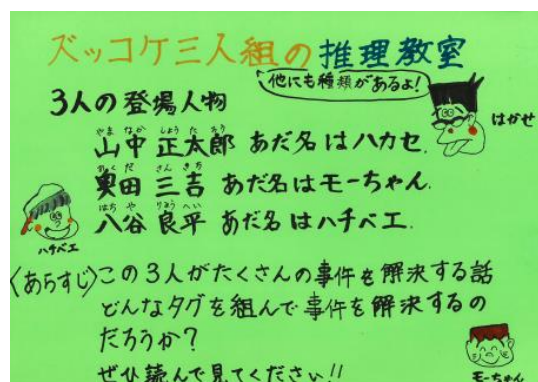 ズッコケ三人組の推理教室
他にも種類があるよ!
3人の登場人物
はかせ
やま なか しょう た ろう
山中 正太郎 あだ名はハカセ.
おく だ さん きち
奥田 三吉 あだ名はモーちゃん.
はち や りょう へい
八谷 良平 あだ名はハチベエ.
ハチベエ
〈あらすじ〉この3人がたくさんの事件を解決する話
どんなタグを組んで事件を解決するの
だろうか?
ぜひ読んで見てください!!
モーちゃん